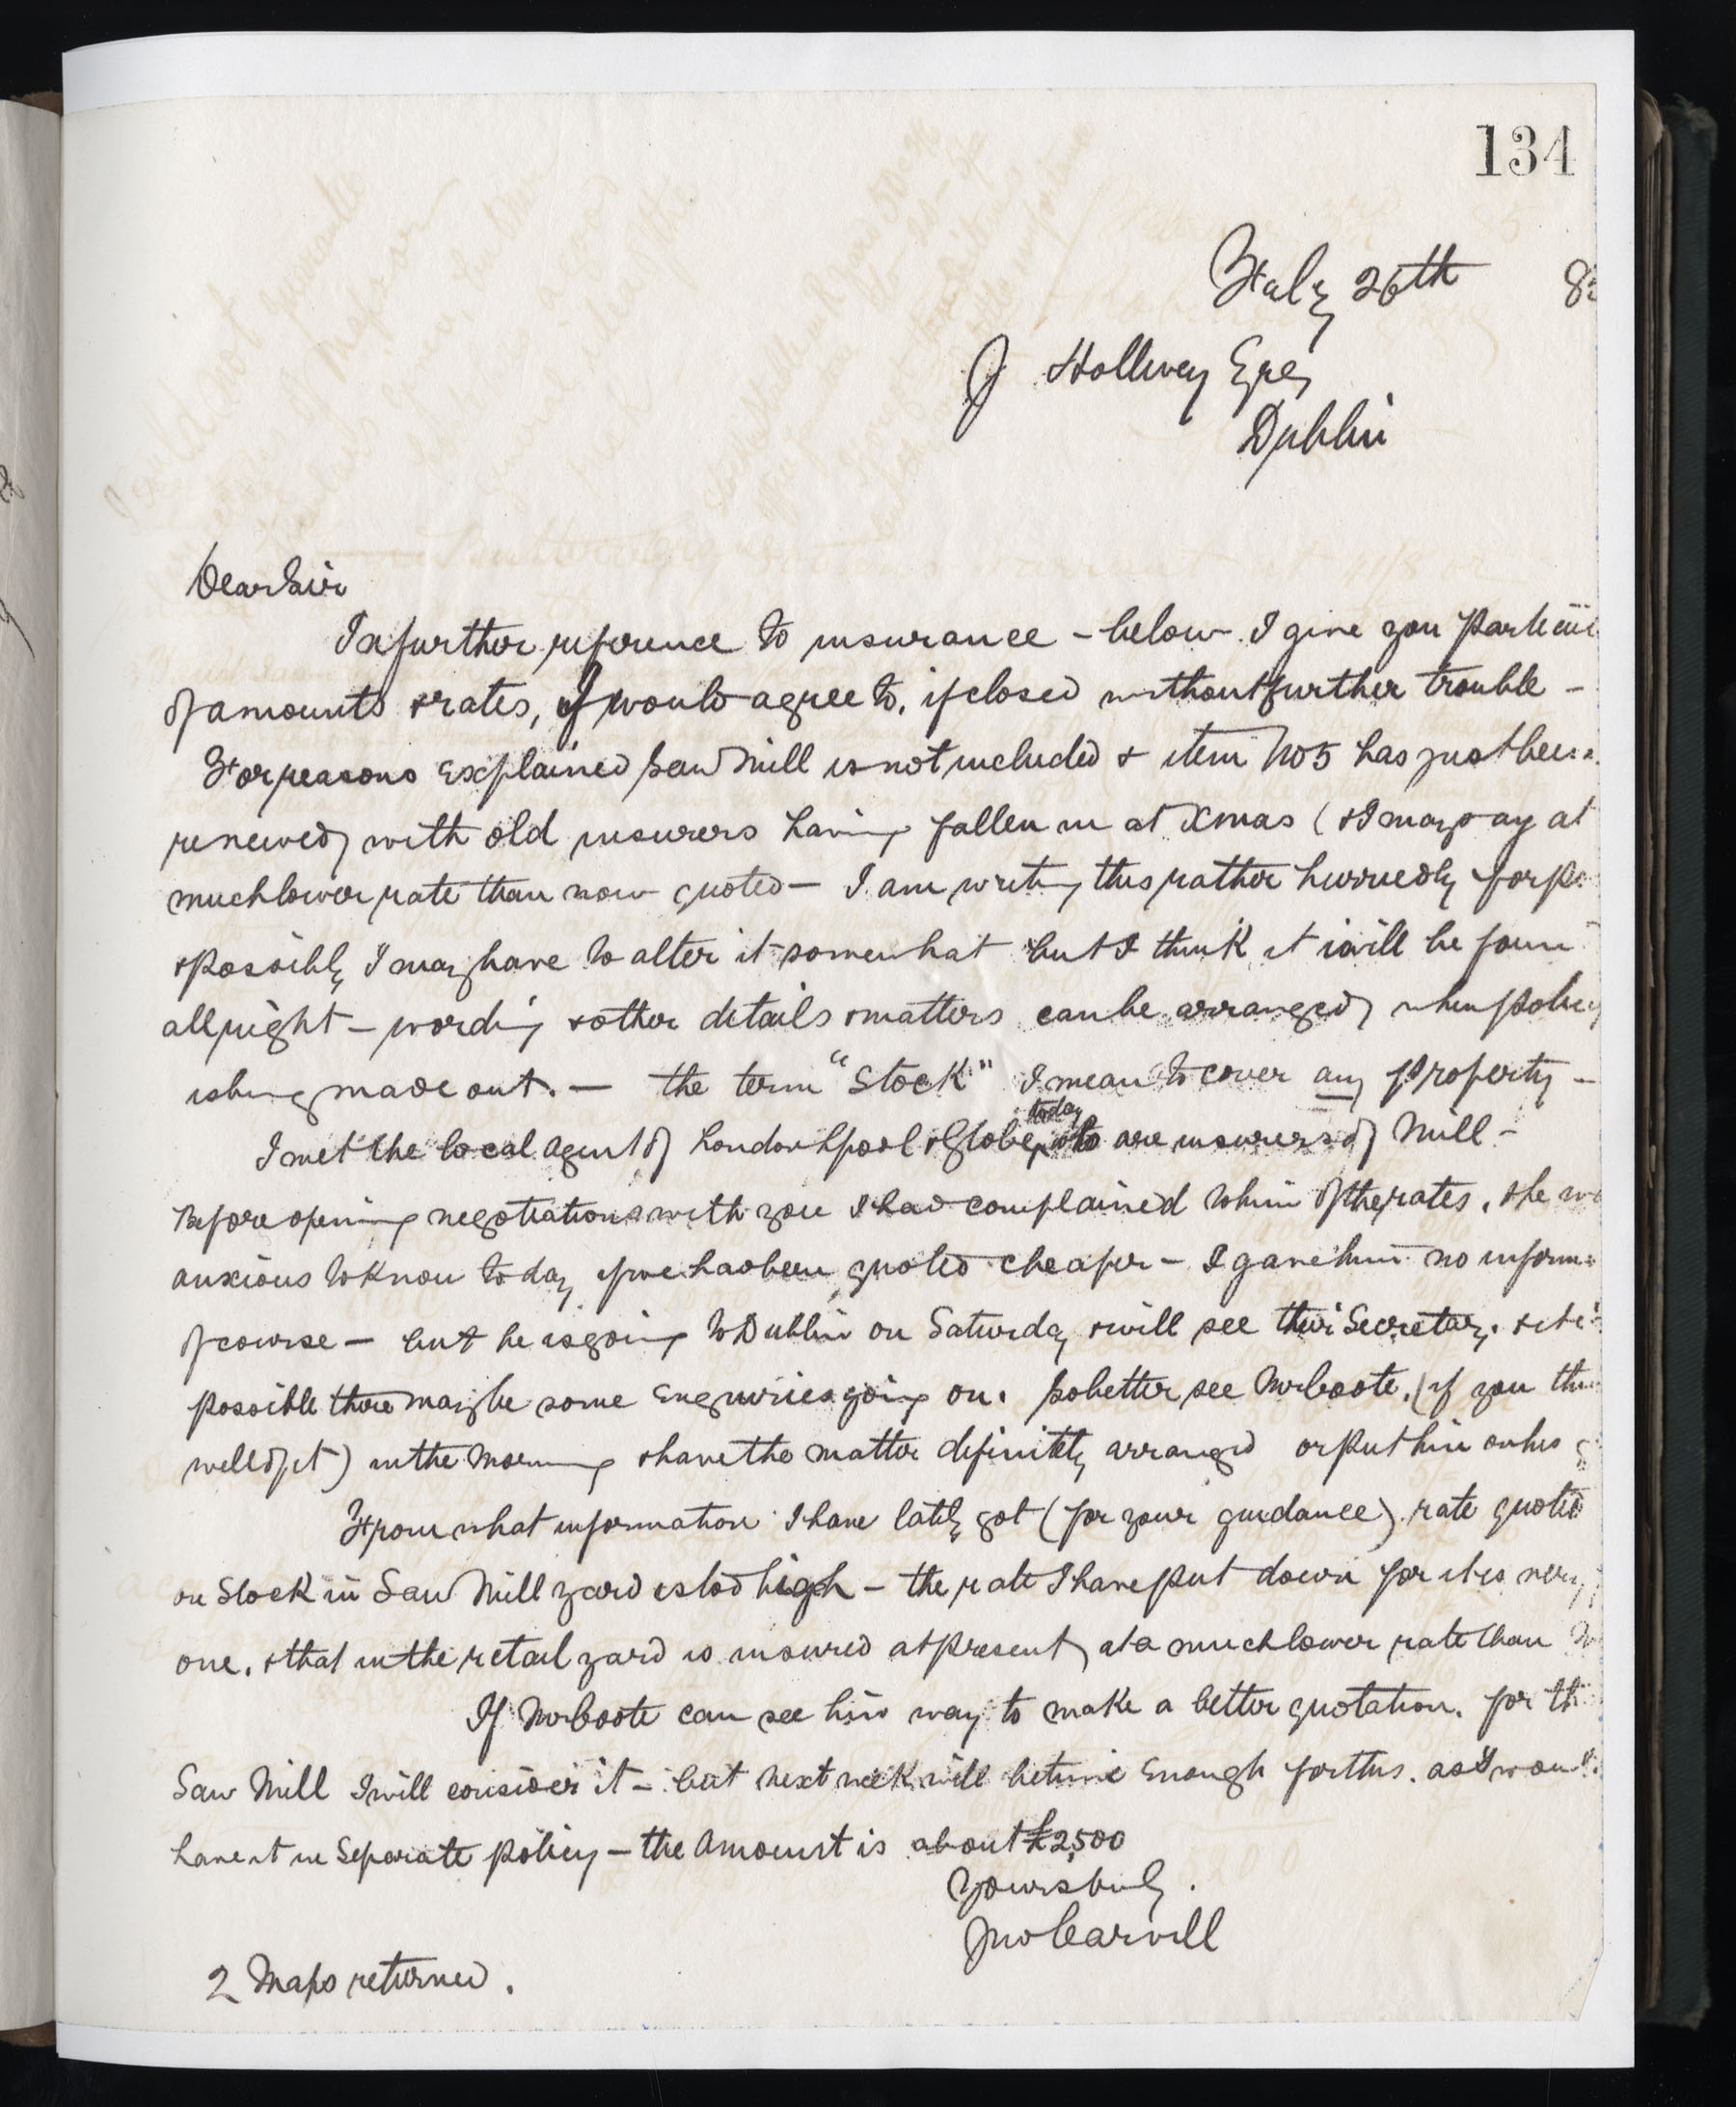 134
Feby 26th 85
J Hollwey Esq
Dublin
Dear Sir
In further reference to insurance - below I give you
of amounts & rates, I would agree to, if closed without further trouble -
For reasons explained Saw Mill is not included & item No 5 has just been
renewed with old insurers having fallen in at Xmas (& I may say at
much lower rate than now quoted - I am writing this rather hurriedly for
& possibly I may have to alter it somewhat but I think it will be
all right - wording & other details & matters can be arranged when policy
is being made out. - the term "Stock" I mean to cover any property -
today
I met the local agent of London Lpool & Globe, who are insurers of Mill -
Before opening negotiations with you I had complained to him of the rates, & he
anxious to know today if we had been quoted cheaper - I gave him no
of course - but he is going to Dublin on Saturday & will see their Secretary. &
possible there may be some Enquiries going on. so better see Mr Coote. (if you
well of it) in the Morning & have the matter definitely arranged or put him on his
From what information I have lately got (for your guidance) rate quoted
on Stock in Saw Mill yard is too high - the rate I have put down for it is
one. & that in the retail yard is insured at present at a much lower rate than
If Mr Coote can see his way to make a better quotation. for
Saw Mill I will consider it - but next week will be time Enough for this. as I
have it in Separate policy - the Amount is about £2500
Yours truly.
Jno Carvill
2 Maps returned.